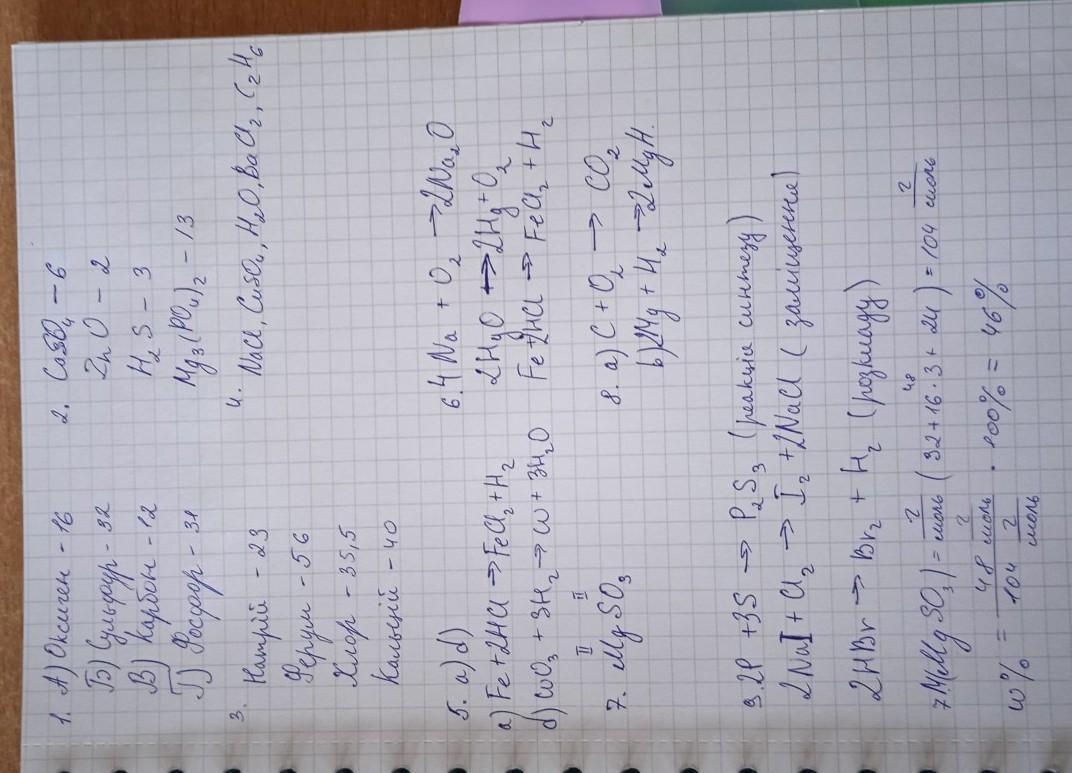 1. А) Оксиген - 16
Б) Сульфур - 32
В) Карбон - 12
Г) Фосфор - 31
2. CaSO₄ - 6
ZnO - 2
H₂S - 3
Mg₃(PO₄)₂ - 13
3. Натрій - 23
Ферум - 56
Хлор - 35,5
Кальцій - 40
4. NaCl, CuSO₄, H₂O, BaCl₂, C₂H₆
5. a) d)
a) Fe + 2HCl → FeCl₂ + H₂
d) WO₃ + 3H₂ → W + 3H₂O
6. 4Na + O₂ → 2Na₂O
2HgO → 2Hg + O₂
Fe + 2HCl → FeCl₂ + H₂
7. MgSO₃
II II
8. a) C + O₂ → CO₂
b) 2Mg + H₂ → 2MgH.
9. 2P + 3S → P₂S₃ (реакція синтезу)
2NaI + Cl₂ → I₂ + 2NaCl (заміщення)
2HBr → Br₂ + H₂ (розкладу)
7. M(MgSO₃) = г/моль (32 + 16 · 3 + 24) = 104 г/моль
48
W% = 48 г/моль / 104 г/моль · 100% = 46%